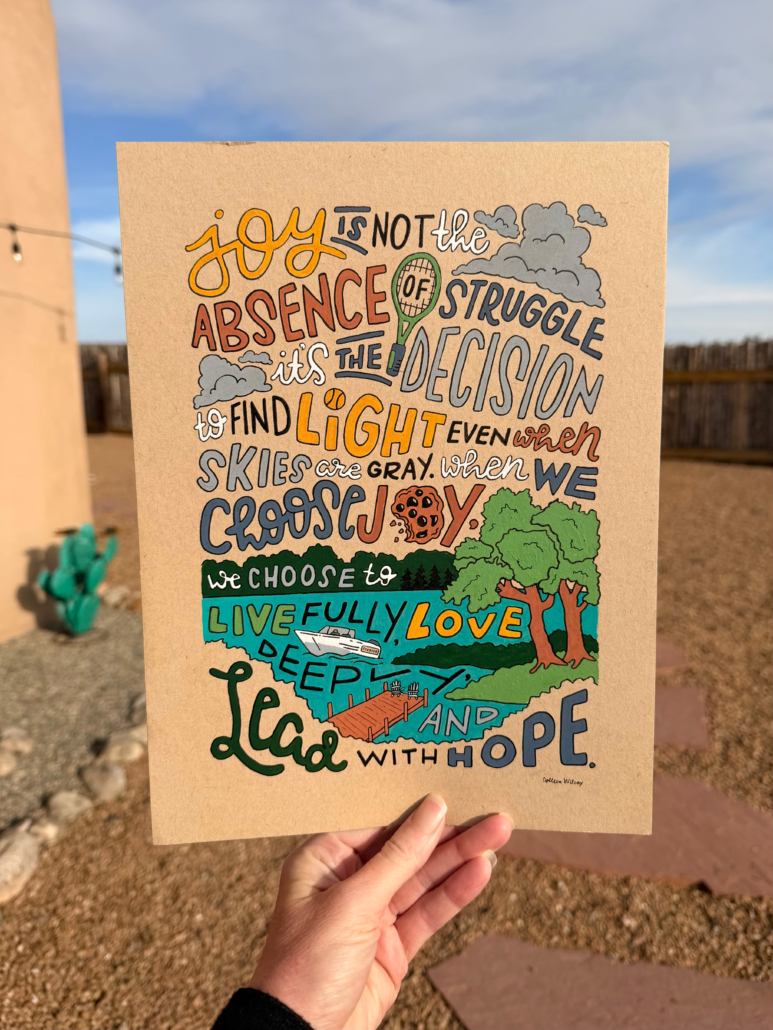 joy IS NOT the
ABSENCE OF STRUGGLE
it's THE DECISION
to FIND LIGHT EVEN when
SKIES are GRAY. when WE
choose JOY,
we CHOOSE to
LIVE FULLY, LOVE
DEEPLY,
AND
Lead WITH HOPE.
Colleen Wilcox